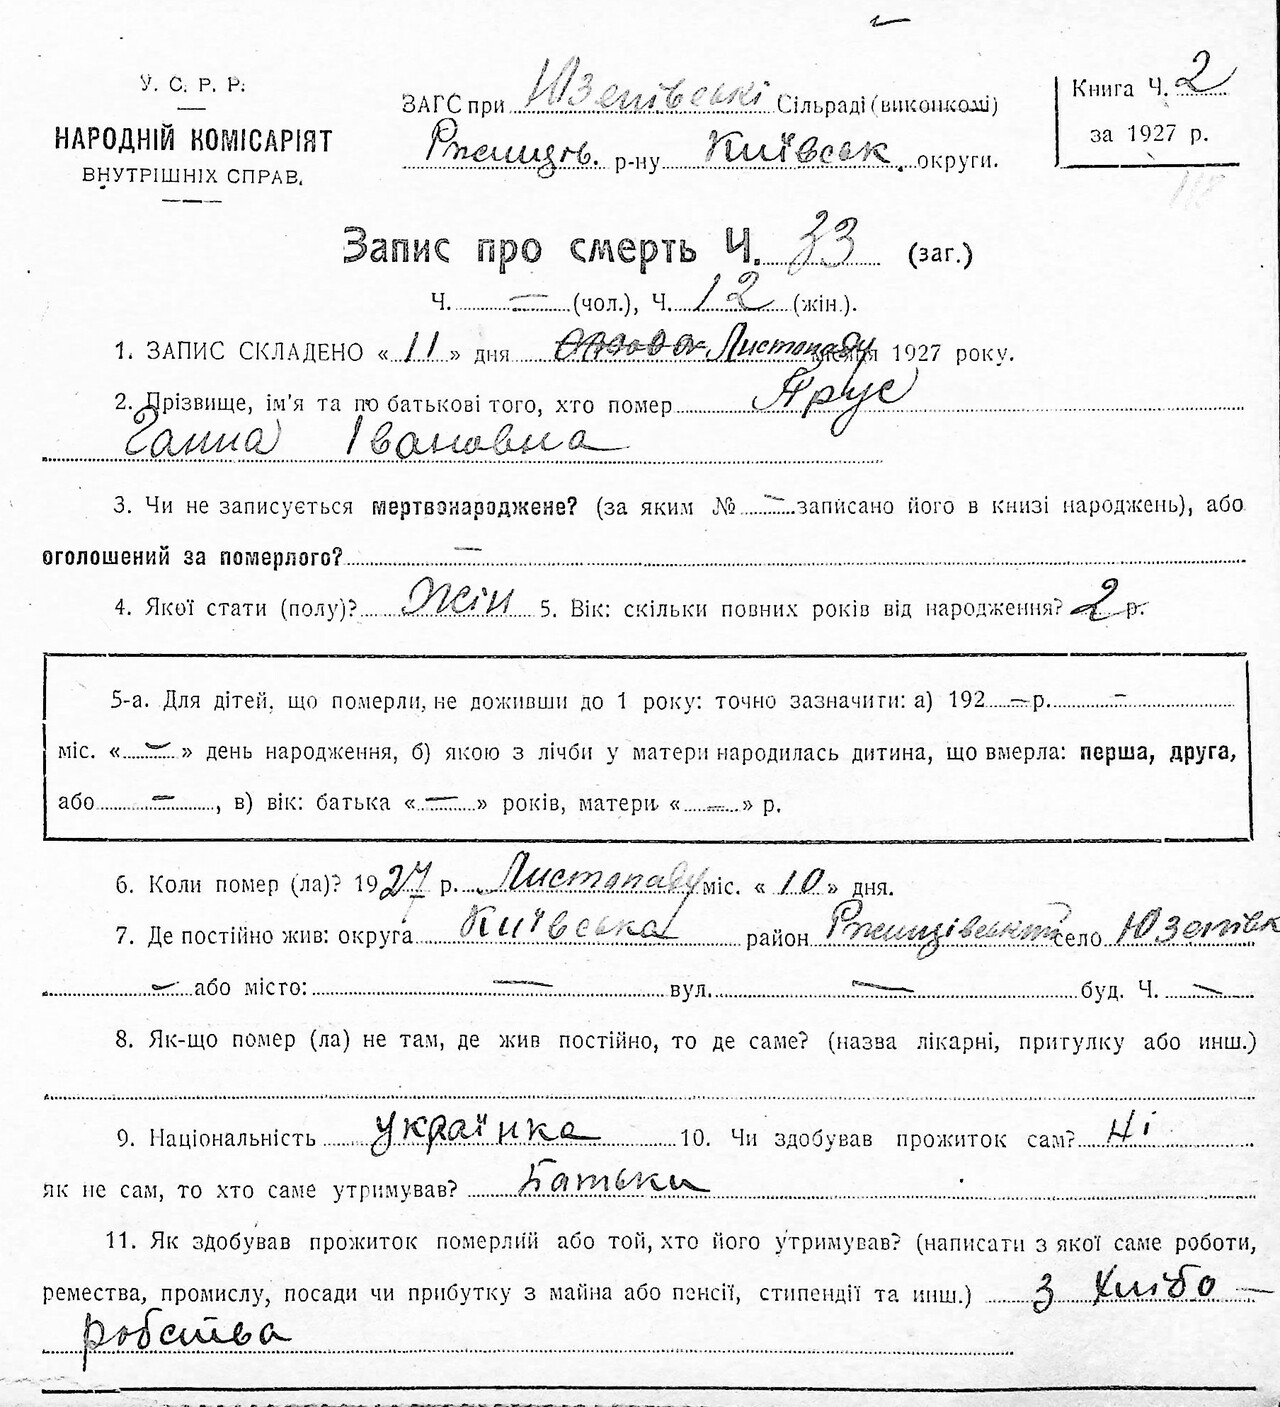 У. С. Р. Р.
НАРОДНІЙ КОМІСАРІЯТ
ВНУТРІШНІХ СПРАВ.
ЗАГС при Юзепівські Сільраді (виконкомі)
Ржищів. р-ну Київськ. округи.
Книга Ч. 2
за 1927 р.
118
Запис про смерть Ч. 33 (заг.)
Ч. — (чол.), Ч. 12 (жін.).
1. ЗАПИС СКЛАДЕНО « 11 » дня Листопаду місяця 1927 року.
2. Прізвище, ім'я та по батькові того, хто помер Ярус
Ганна Івановна
3. Чи не записується мертвонароджене? (за яким № — записано його в книзі народжень), або
оголошений за померлого? —
4. Якої стати (полу)? Жін 5. Вік: скільки повних років від народження? 2 р.
5-а. Для дітей, що померли, не доживши до 1 року: точно зазначити: а) 192 — р. —
міс. « — » день народження, б) якою з лічби у матери народилась дитина, що вмерла: перша, друга,
або — , в) вік: батька « — » років, матери « — » р.
6. Коли помер (ла)? 1927 р. Листопаду міс. « 10 » дня.
7. Де постійно жив: округа Київська район Ржищівський село Юзепівк
— або місто: — вул. — буд. Ч. —
8. Як-що помер (ла) не там, де жив постійно, то де саме? (назва лікарні, притулку або инш.)
9. Національність українка 10. Чи здобував прожиток сам? Ні
як не сам, то хто саме утримував? Батьки
11. Як здобував прожиток померлий або той, хто його утримував? (написати з якої саме роботи,
ремества, промислу, посади чи прибутку з майна або пенсії, стипендії та инш.) З хлібо —
робства